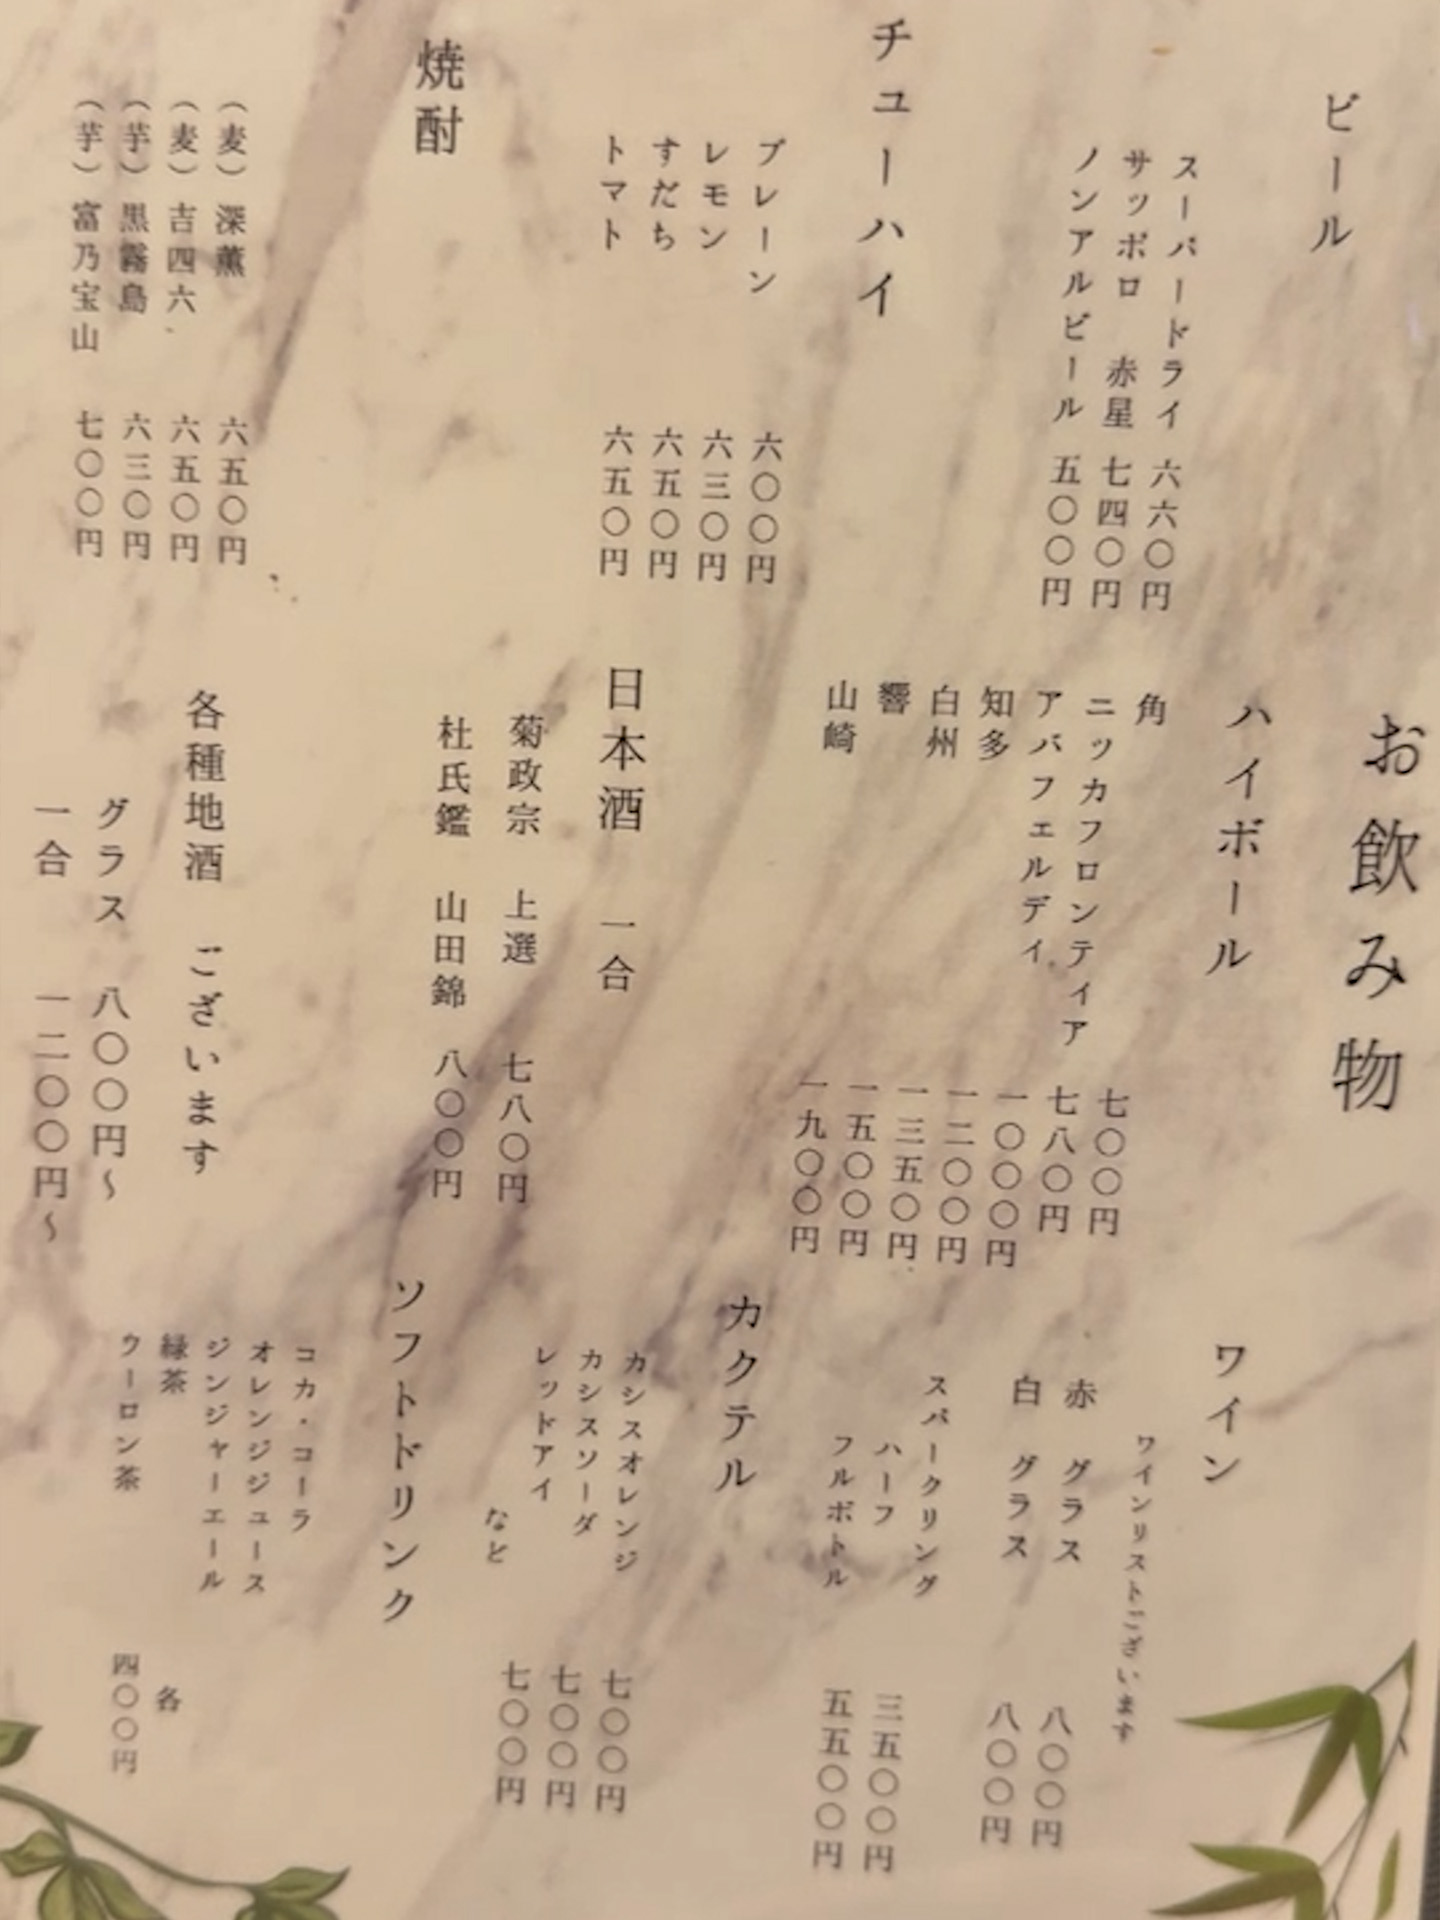 お飲み物
ビール
スーパードライ 六六〇円
サッポロ 赤星 七四〇円
ノンアルビール 五〇〇円
チューハイ
プレーン 六〇〇円
レモン 六三〇円
すだち 六五〇円
トマト 六五〇円
焼酎
（麦）深薫 六五〇円
（麦）吉四六 六五〇円
（芋）黒霧島 六三〇円
（芋）富乃宝山 七〇〇円
ハイボール
角 七〇〇円
ニッカフロンティア 七八〇円
アバフェルディ 一〇〇〇円
知多 一二〇〇円
白州 一三五〇円
響 一五〇〇円
山崎 一九〇〇円
日本酒 一合
菊政宗 上選 七八〇円
杜氏鑑 山田錦 八〇〇円
各種地酒 ございます
グラス 八〇〇円～
一合 一二〇〇円～
ワイン
ワインリストございます
赤 グラス 八〇〇円
白 グラス 八〇〇円
スパークリング
ハーフ 三五〇〇円
フルボトル 五五〇〇円
カクテル
カシスオレンジ 七〇〇円
カシスソーダ 七〇〇円
レッドアイ 七〇〇円
など
ソフトドリンク
コカ・コーラ
オレンジジュース
ジンジャーエール
緑茶 各
ウーロン茶 四〇〇円